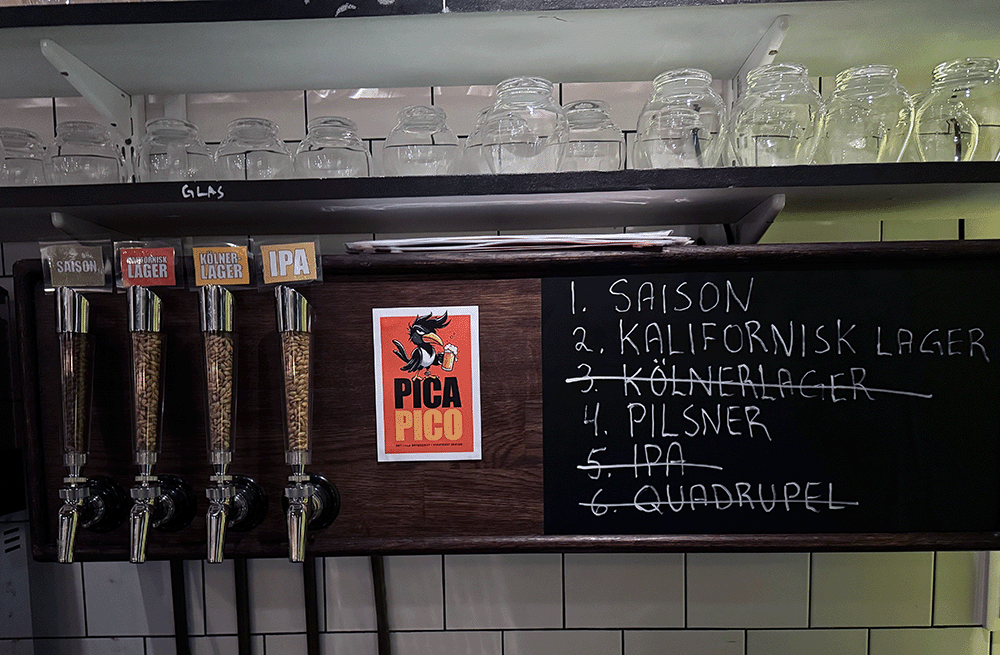 GLAS
SAISON
KALIFORNISK
LAGER
KÖLNER-
LAGER
IPA
PICA
PICO
1. SAISON
2. KALIFORNISK LAGER
3. KÖLNERLAGER
4. PILSNER
5. IPA
6. QUADRUPEL